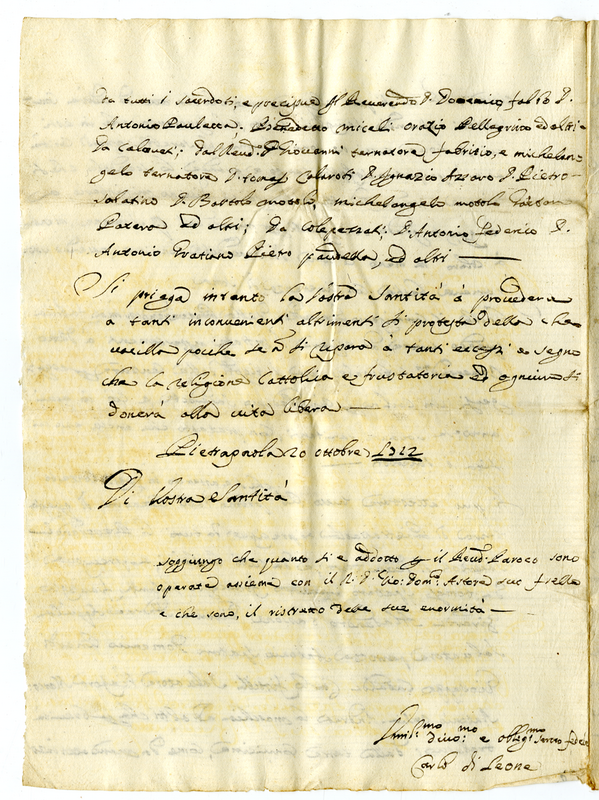 da tutti i sacerdoti, e precipue Il Reverendo D. Domenico falbo D.
Antonio Pauletta. Benedetto miceli Orazio Pellegrino ed altri
da Caloveti; dal Rend.º D Giovanni ternatore fabritio, e michelan
gelo ternatore D. tomaso Calaroti D. Ignazio Azzaro D. Pietro
salatino D. Bartolo motolo, michelangelo motolo
ed altri; da D. Antonio Federico D.
Antonio Gratiano Pietro ed altri
Si priega intanto la Vostra Santità à provedere
a tanti inconvenienti altrimenti si protesta della che
vacilla poiche se n si ripara à tanti eccessi è segno
che la religione Cattolica e frustatoria ed ogniuno si
donerà alla vita libera
Pietrapaola 20 ottobre
Di Vostra Santità
Soggiungo che quanto si e addotto il Rend. Paroco sono
operate assieme con il R. D. Gio: Dom.co Astore suo frello
e che sono, il ristratto delle sue enormità
Umil.mo Divo.mo e obblig.mo servo fedele
Carlo di Leone